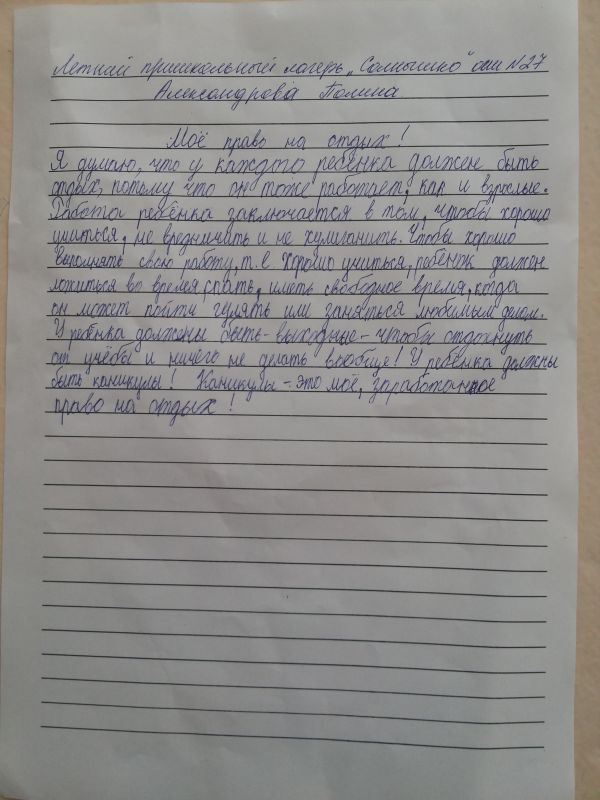 Летний пришкольный лагерь „Солнышко" сш №27
Александрова Полина
Моё право на отдых!
Я думаю, что у каждого ребёнка должен быть
отдых, потому что он тоже работает, как и взрослые.
Работа ребёнка заключается в том, чтобы хорошо
учиться, не вредничать и не хулиганить. Чтобы хорошо
выполнять свою работу, т.е хорошо учиться, ребёнок должен
ложиться во время спать, иметь свободное время, когда
он может пойти гулять или заняться любимым делом.
У ребёнка должены быть - выходные - чтобы отдохнуть
от учёбы и ничего не делать вообще! У ребёнка должны
быть каникулы! Каникулы - это моё, заработанное
право на отдых!